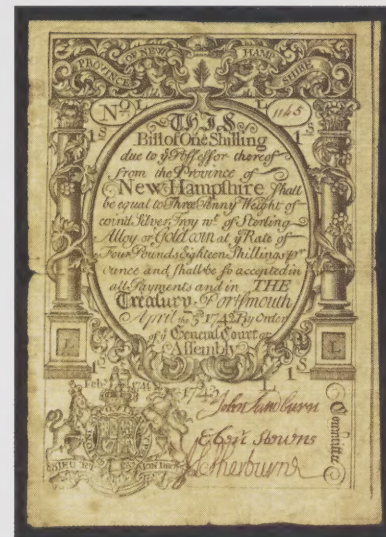 PROVINCE OF NEW HAMP SHIRE
No 1145
1S 1S
THIS
Bill of One Shilling
due to ye Possessor thereof
from the Province of
New-Hampshire shall
be equal to Three Penny Weight of
coin'd Silver, Troy wt. of Sterling
Alloy or Gold coin at ye Rate of
Four Pounds Eighteen Shillings pr
ounce and shall be so accepted in
all Payments and in THE
Treasury. Portsmouth
April the 3d 1742 By Order
of ye General Court or
Assembly
L L
1S 1S
Feb 1741
1742
John Sanburn
Eben Stevens
Sherburne
Committee
DIEU ET MON DROIT